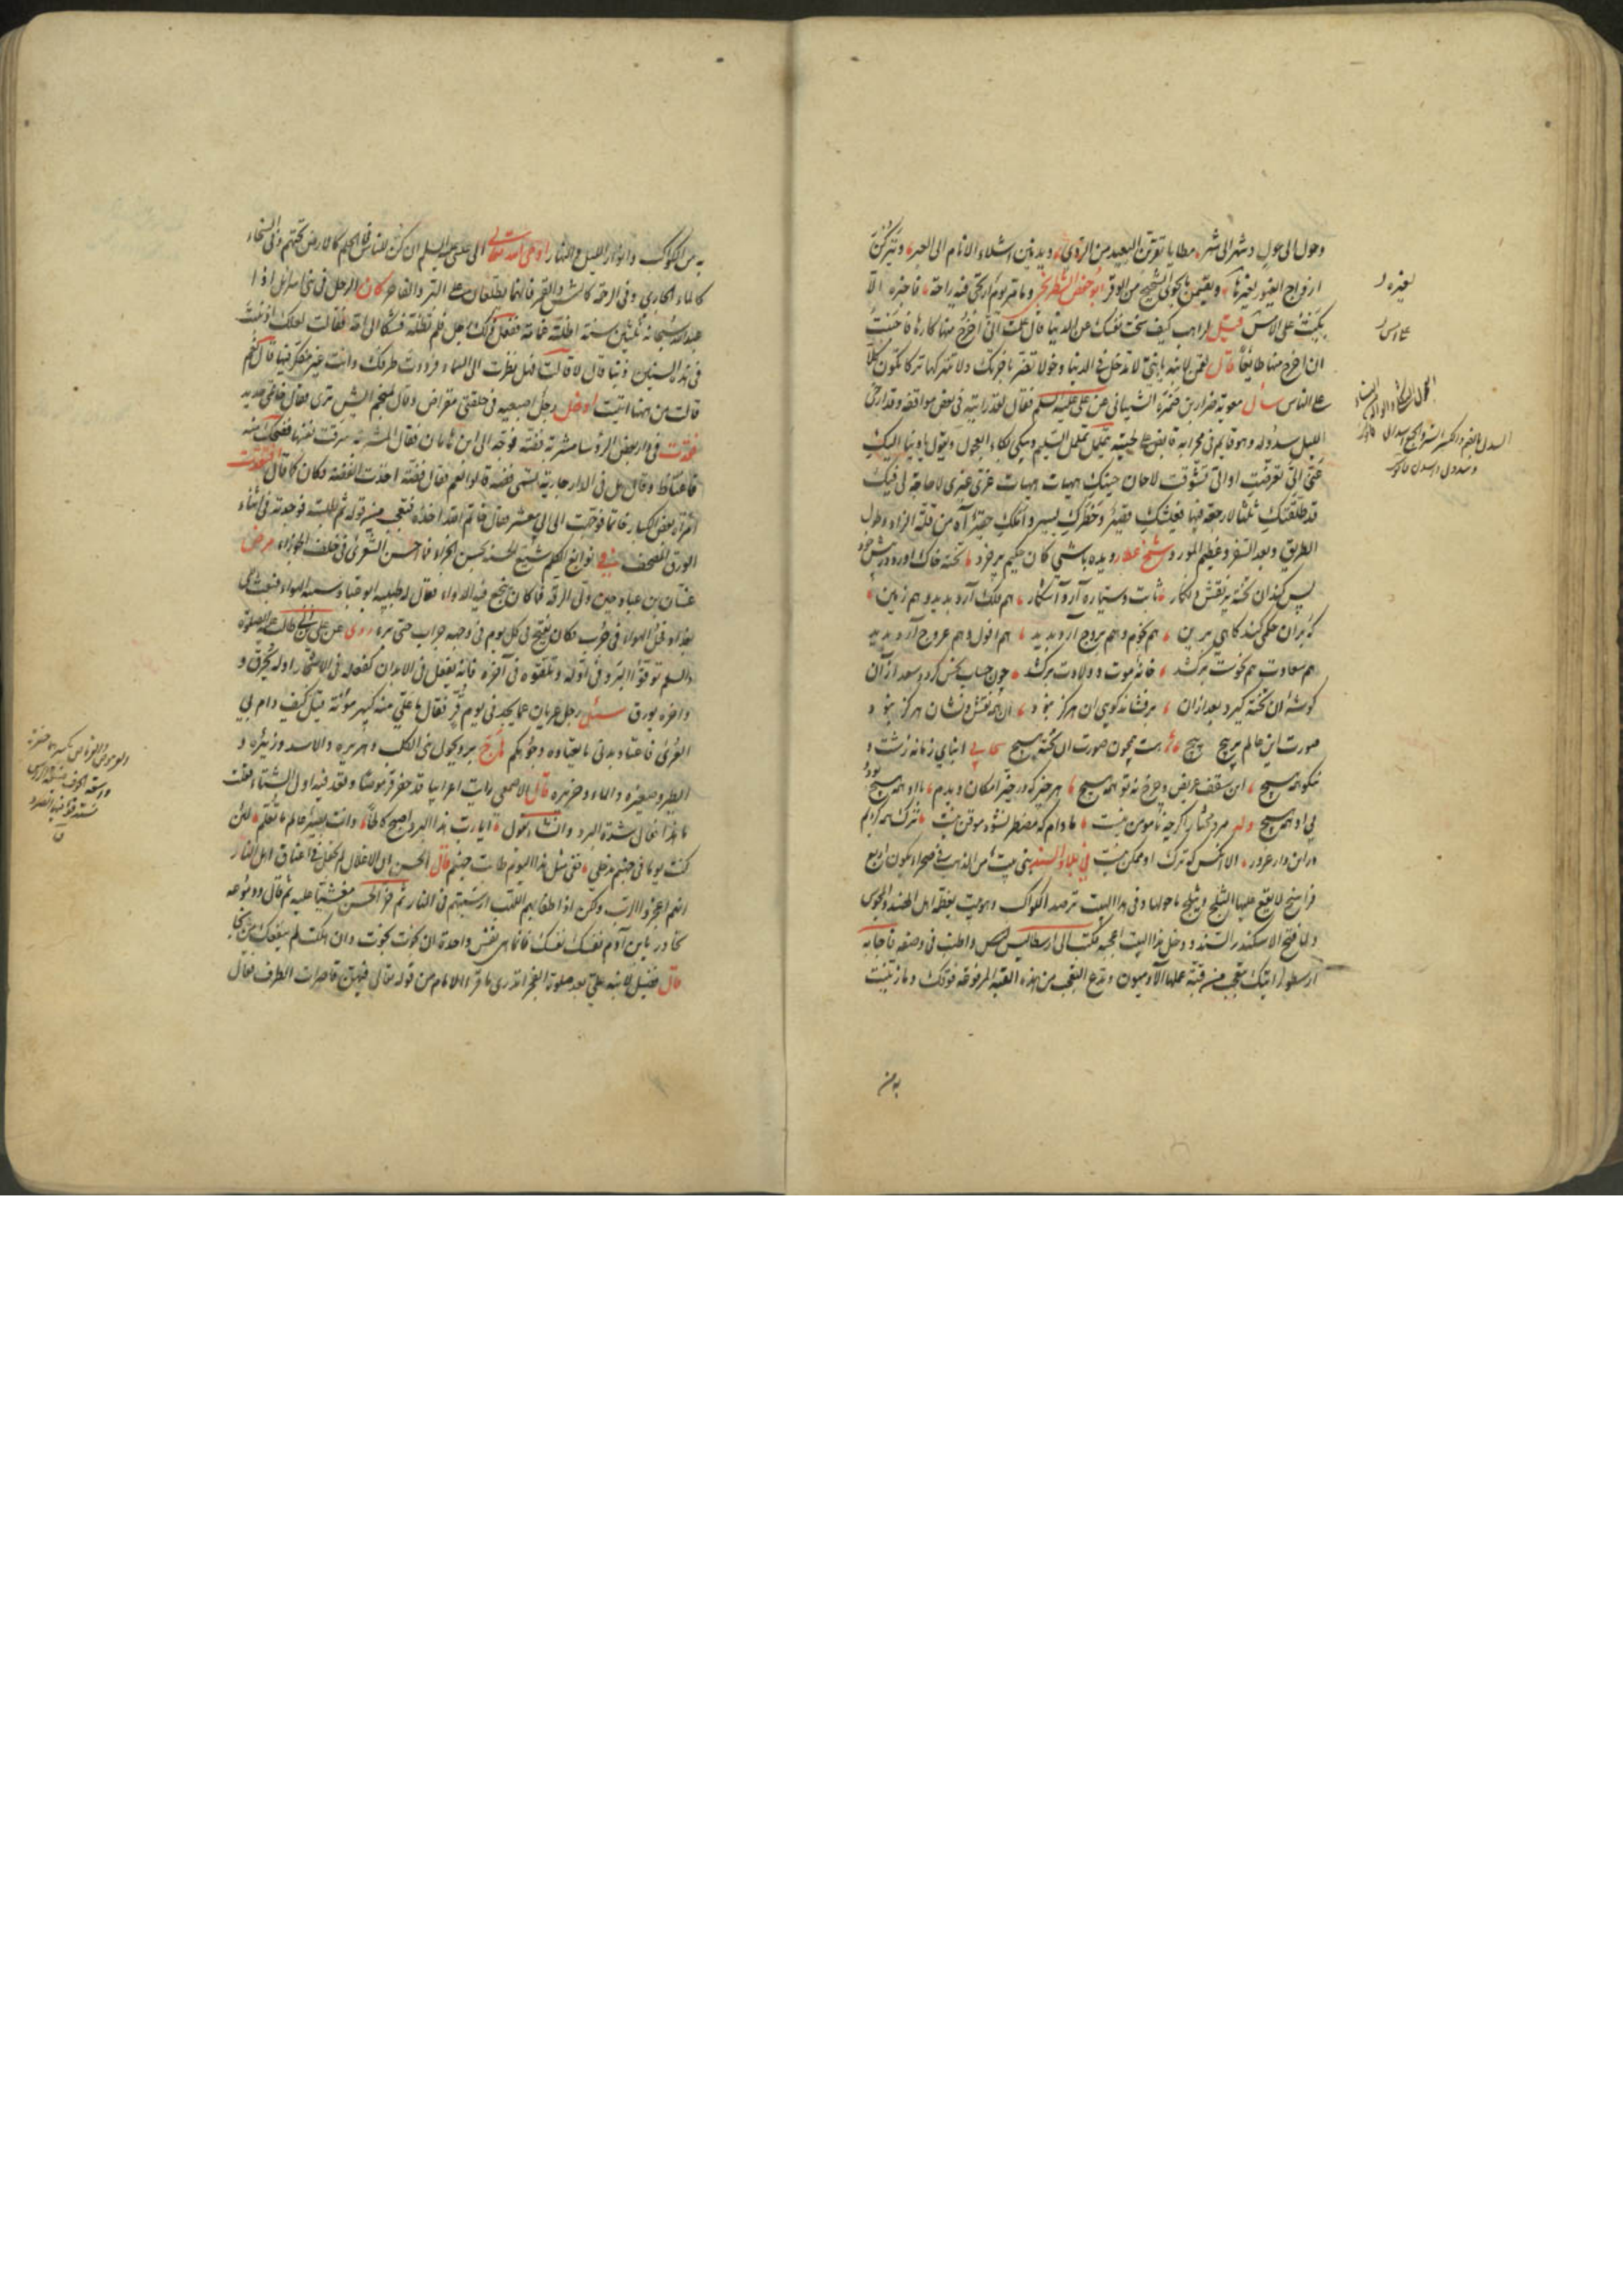 وحول الى حول وشهر الى شهر مطايا يقربن البعيد من الردى ويدنين اشلاء الانام الى العبر ويتركن
ازواج الغيور لغيره ويقتسمن ما يحوى الشحيح من الوفر ابو حفص الشطرنجى وما مر يوم ارتجى فيه راحة فاخبره الا
بكيت على الامس قيل لراهب كيف سخت نفسك عن الدنيا قال علمت انى اخرج منها كارها فاحببت
ان اخرج منها طايعا قال لقمن لابنه يا بنى لا تدخل فى الدنيا دخولا تضر باخرتك ولا تتركها تركا تكون كلا
على الناس سأل معوية ضرار بن ضمرة الشيبانى عن على عليه السلم فقال لقد رايته فى بعض مواقفه وقد ارخى
الليل سدوله وهو قايم فى محرابه قابض على لحيته يتململ تململ السليم ويبكى بكاء ويقول يا دنيا اليك
عنى الى تعرضت او الى تشوقت لا حان حينك هيهات هيهات غرى غيرى لا حاجة لى فيك
قد طلقتك ثلثا لا رجعة فيها فعيشك قصير وخطرك يسير واملك حقير آه من قلة الزاد وطول
الطريق وبعد السفر وعظيم المورد شيخ عطار ديده باشى كان حكيم پر خرد تخته خاك اورد در پيش خود
پس كند ان تخته پر نقش و نكار ثابت و سياره آرد آشكار هم فلك آرد پديد و هم زمين
كه بر ان حكمى كند كاهى بر اين هم نجوم و هم بروج آرد پديد هم افول و هم عروج آرد پديد
هم سعادت هم نحوست بركشد خانه موت و ولادت بركشد چون حساب نحس كرد و سعد از آن
كوشه ان تخته كيرد بعد ازان برفشاند كويى ان هركز نبود آن همه نقش و نشان هركز نبود
صورت اين عالم پر پيچ پيچ هست همچون صورت ان تخته هيچ سحابى ابناى زمانه زشت و
نيكو همه هيچ اين سقف عريض و چرخ نه تو همه هيچ هر چيز كه در حيز امكان ديدم با او همه هيچ بود
بى او همه هيچ وله مرد مختار اكر چه مأمون نيست تا دام كه مضطر نشود موقن نيست ترك همه كرديم
دراين دار غرور الا آنكس كه ترك او ممكن نيست فى بلاد السند بنى بيت من الذهب فى صحراء يكون اربع
فراسخ لا يقع عليها الثلج ويثلج ما حولها وفى هذا البيت ترصد الكواكب وهو بيت يعظمه اهل الهند والمجوس
ولما فتح الاسكندر السند ودخل هذا البيت اعجبه فكتب الى ارسطاليس واطنب فى وصفه فاجابه
ارسطو رايتك تتعجب من قبة عملها الآدميون وتدع التعجب من هذه القبة المرفوعة فوقك وما زينت
به من
لغيره
به من الكواكب وانوار الليل والنهار اوحى الله تعالى الى عيسى عليه السلم ان كن للناس فى الحلم كالارض تحتهم وفى السخاء
كالماء الجارى وفى الرحمة كالشمس والقمر فانهما يطلعان على البر والفاجر كان الرجل فى بنى اسرائيل اذا
عبد الله سبحانه ثلثين سنة اظلته غمامة ففعل ذلك رجل فلم تظله فشكا الى امه فقالت لعلك اذنبت
فى هذه السنين ذنبا قال لا قالت فهل نظرت الى السماء فرددت طرفك وانت غير متفكر فيها قال نعم
قالت من ههنا اتيت ادخل رجل اصبعيه فى حلقتى مقراض وقال لمنجم ايش ترى فقال خاتمى حديد
فقدت فى دار بعض الرؤسا مشربة فضة فوجه الى ابن ماهان فقال المشربة سرقت نفسها فضحك منه
فاغتاظ وقال هل فى الدار جارية اسمها فضة قالوا نعم فقال فضة اخذت الفضة وكان كما قال افتقدت
امرأة بعض الكبار خاتما فوجهت الى ابى معشر فقال خاتم الله اخذه فتعجب من قوله ثم طلبته فوجدته فى اثناء
الورق المصحف فى نوابغ الكلم شيّع الحسنة بحسن الجزاء فما احسن الشعرى فى خلف الجوزاء مرض
غسان بن عباد حين ولى الرقة فما كان ينجع فيه الدواء فقال له طبيبه ابو عباد سببه الهواء فبعث الى
بغداد فملئ الهواء فى جرب فكان يفتح فى كل يوم فى وجهه جراب حتى برء روى عن على بن ابى طالب عليه الصلوة
والسلم توقوا البرد فى اوله وتلقوه فى آخره فانه يفعل فى الابدان كفعله فى الاشجار اوله يحرق و
واخره يورق سئل رجل عريان عما يجد فى يوم قر فقال ما على منه كبير مؤنة قيل كيف دام بى
العرى فاعتاد بدنى ما يعتاده وجوهكم برد يحول بين الكلب وهريره والاسد وزئيره و
الطير وصفيره والماء وخريره قال الاصمعى رايت اعرابيا قد حفر قرموصا وقعد فيه اول الشتاء فقلت
ما هذا فقال شدة البرد وانشأ يقول ايا رب هذا البرد اصبح كالحا وانت بصير عالم ما تعلم لئن
كنت يوما فى جهنم مدخلى ففى مثل هذا اليوم طابت جهنم قال الحسن ان الاغلال لم تجعل فى اعناق اهل النار
لانهم اعجزوا الرب ولكن اذا طفا بهم اللهب ارسبتهم فى النار ثم خر الحسن مغشيا عليه ثم قال ودموعه
تتحادر يا بن آدم نفسك نفسك فانما هى نفس واحدة ان نجوت نجوت وان هلكت لم ينفعك من نجا
قال فضيل لابنه على بعد صلوة الفجر اتدرى ما قرء الامام من قوله تعالى فيهن قاصرات الطرف فقال